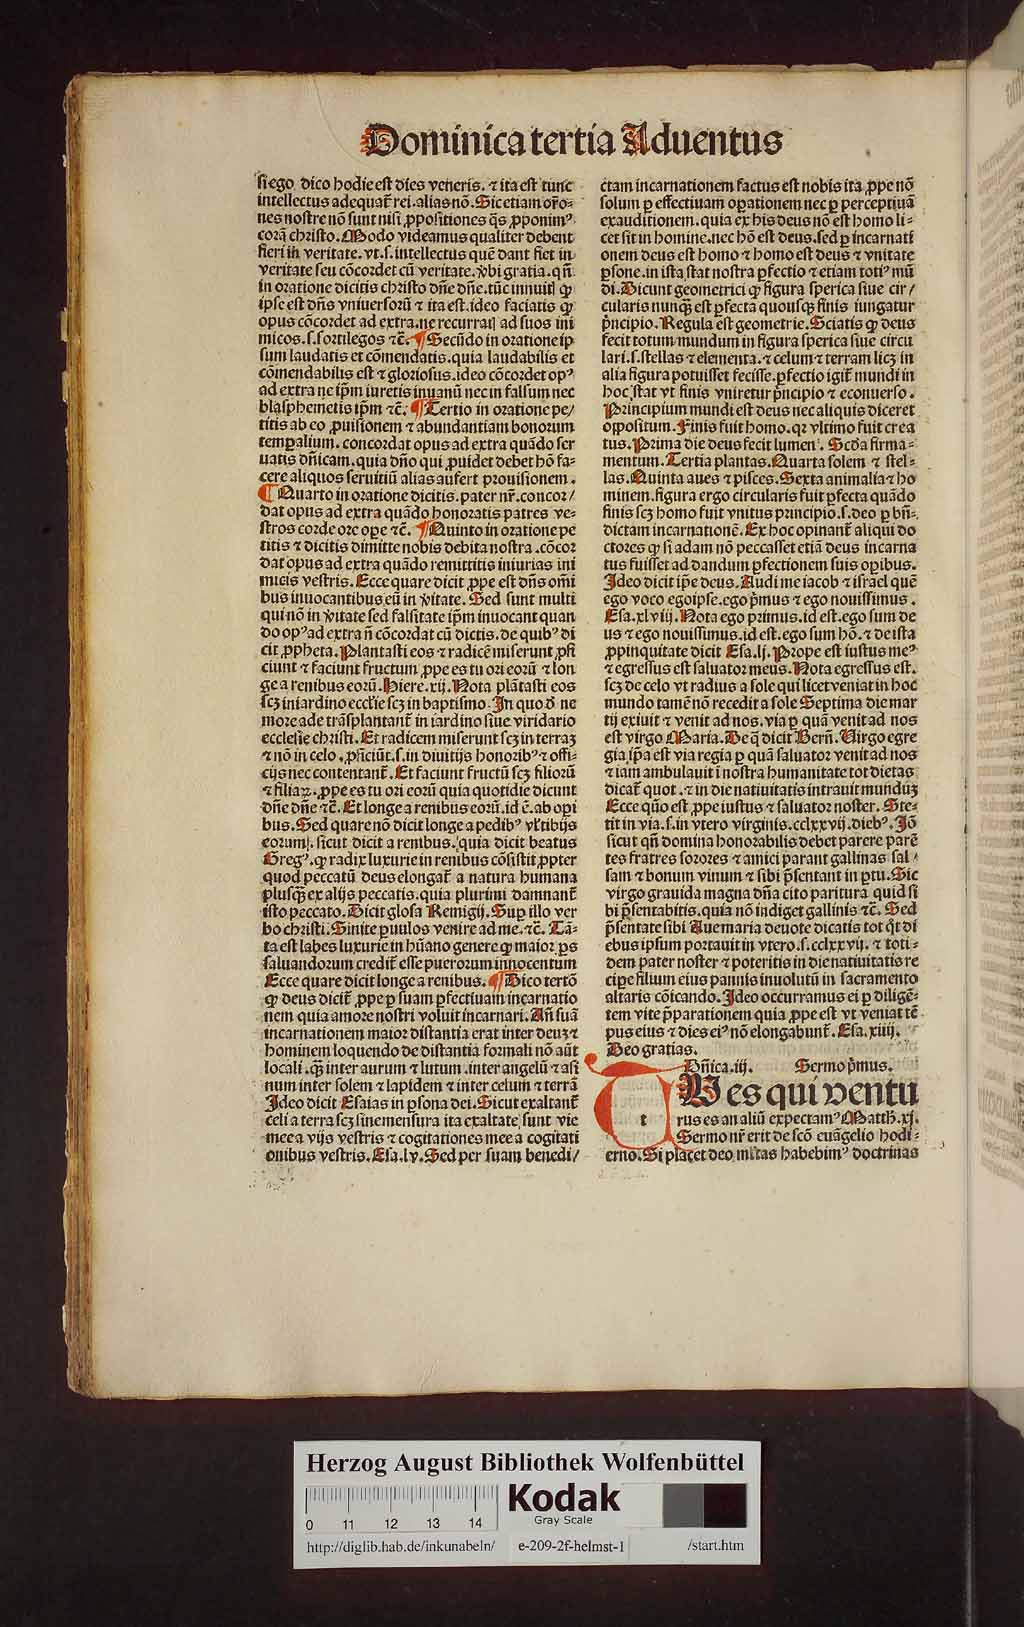 Dominica tertia Aduentus
si ego dico hodie est dies veneris. ⁊ ita est tunc
intellectus adequat᷑ rei. alias nõ. Sic etiam or̃o-
nes nostre nõ sunt nisi ꝓpositiones q̃s ꝓponimꝰ
corã christo. Modo videamus qualiter debent
fieri in veritate. vt. s. intellectus quẽ dant fiet in
veritate seu cõcordet cũ veritate. v̾bi gratia. qñ
in oratione dicitis christo dñe dñe. tũc innuitꝭ ꝙ
ipse est dñs vniuersorũ ⁊ ita est. ideo faciatis ꝙ
opus cõcordet ad extra. ne recurratꝭ ad suos ini
micos. s. sortilegos ⁊c̃. ¶ Secũdo in oratione ip
sum laudatis et cõmendatis. quia laudabilis et
cõmendabilis est ⁊ gloriosus. ideo cõcordet opꝰ
ad extra ne ip̃m iuretis in vanũ nec in falsum nec
blasphemetis ip̃m ⁊c̃. ¶ Tertio in oratione pe/
titis ab eo ꝓuisionem ⁊ abundantiam bonorum
temꝑalium. concordat opus ad extra quãdo ser
uatis dñicam. quia dño qui ꝓuidet debet hõ fa-
cere aliquos seruitiũ alias aufert prouisionem.
¶ Quarto in oratione dicitis. pater nr̃. concor/
dat opus ad extra quãdo honoratis patres ve-
stros corde ore oꝑe ⁊c̃. ¶ Quinto in oratione pe
titis ⁊ dicitis dimitte nobis debita nostra. cõcor
dat opus ad extra quãdo remittitis iniurias ini
micis vestris. Ecce quare dicit ꝓpe est dñs om̃i
bus inuocantibus eũ in v̾itate. Sed sunt multi
qui nõ in v̾itate sed falsitate ip̃m inuocant quan
do opꝰ ad extra ñ cõcordat cũ dictis. de quibꝰ di
cit ꝓpheta. Plantasti eos ⁊ radicẽ miserunt ꝓfi
ciunt ⁊ faciunt fructum ꝓpe es tu ori eorũ ⁊ lon
ge a renibus eorũ. Hiere. xij. Nota plãtasti eos
scꝫ in iardino eccl̃ie scꝫ in baptismo. In quo d̾ ne
more ade trãsplantant᷑ in iardino siue viridario
ecclesie christi. Et radicem miserunt scꝫ in terraꝫ
⁊ nõ in celo. ꝓficiũt. s. in diuitijs honoribꝰ ⁊ offi-
cijs nec contentant᷑. Et faciunt fructũ scꝫ filiorũ
⁊ filiaꝝ. ꝓpe es tu ori eorũ quia quotidie dicunt
dñe dñe ⁊c̃. Et longe a renibus eorũ. id ẽ. ab oꝑi
bus. Sed quare nõ dicit longe a pedibꝰ vl̾ tibijs
eorum. sicut dicit a renibus. quia dicit beatus
Gregꝰ. ꝙ radix luxurie in renibus cõsistit ꝓpter
quod peccatũ deus elongat᷑ a natura humana
plusq̃ȝ ex alijs peccatis. quia plurimi damnant᷑
isto peccato. Dicit glosa Remigij. Suꝑ illo ver
bo christi. Sinite ꝑuulos venire ad me. ⁊c̃. Tã-
ta est labes luxurie in hũano genere ꝙ maior ꝑs
saluandorum credit᷑ esse puerorum innocentum
Ecce quare dicit longe a renibus. ¶ Dico tertõ
ꝙ deus dicit᷑ ꝓpe ꝑ suam ꝑfectiuam incarnatio
nem quia amore nostri voluit incarnari. Añ suã
incarnationem maior distantia erat inter deuꝫ ⁊
hominem loquendo de distantia formali nõ aũt
locali. q̃ȝ inter aurum ⁊ lutum. inter angelũ ⁊ asi
num inter solem ⁊ lapidem ⁊ inter celum ⁊ terrã
Ideo dicit Esaias in ꝑsona dei. Sicut exaltant᷑
celi a terra scꝫ sine mensura ita exaltate sunt vie
mee a vijs vestris ⁊ cogitationes mee a cogitati
onibus vestris. Esa. lv. Sed per suam benedi/
ctam incarnationem factus est nobis ita ꝓpe nõ
solum ꝑ effectiuam oꝑationem nec ꝑ perceptiuã
exauditionem. quia ex his deus nõ est homo li-
cet sit in homine. nec hõ est deus. sed ꝑ incarnati
onem deus est homo ⁊ homo est deus ⁊ vnitate
ꝑsone. in ista stat nostra ꝑfectio ⁊ etiam totiꝰ mũ
di. Dicunt geometrici ꝙ figura sperica siue cir/
cularis nunq̃ȝ est ꝑfecta quousqꝫ finis iungatur
p̃ncipio. Regula est geometrie. Sciatis ꝙ deus
fecit totum mundum in figura sperica siue circu
lari. s. stellas ⁊ elementa. ⁊ celum ⁊ terram licꝫ in
alia figura potuisset fecisse. ꝑfectio igit᷑ mundi in
hoc stat vt finis vniretur p̃ncipio ⁊ econuerso.
Principium mundi est deus nec aliquis diceret
oppositum. Finis fuit homo. qꝛ vltimo fuit crea
tus. Prima die deus fecit lumen. Scd̃a firma-
mentum. Tertia plantas. Quarta solem ⁊ stel-
las. Quinta aues ⁊ pisces. Sexta animalia ⁊ ho
minem. figura ergo circularis fuit ꝑfecta quãdo
finis scꝫ homo fuit vnitus principio. s. deo ꝑ bñ-
dictam incarnationẽ. Ex hoc opinant᷑ aliqui do
ctores ꝙ si adam nõ peccasset etiã deus incarna
tus fuisset ad dandum ꝑfectionem suis oꝑibus.
Ideo dicit ip̃e deus. Audi me iacob ⁊ israel quẽ
ego voco ego ipse. ego p̃mus ⁊ ego nouissimus.
Esa. xlviij. Nota ego primus. id est. ego sum de
us ⁊ ego nouissimus. id est. ego sum hõ. ⁊ de ista
ꝓpinquitate dicit Esa. lj. Prope est iustus meꝰ
⁊ egressus est saluator meus. Nota egressus est.
scꝫ de celo vt radius a sole qui licet veniat in hoc
mundo tamẽ nõ recedit a sole Septima die mar
tij exiuit ⁊ venit ad nos. via ꝑ quã venit ad nos
est virgo Maria. De q̃ dicit Berñ. Virgo egre
gia ip̃a est via regia ꝑ quã saluator venit ad nos
⁊ iam ambulauit ĩ nostra humanitate tot dietas
dicat᷑ quot. ⁊ in die natiuitatis intrauit mundũꝫ
Ecce quõ est ꝓpe iustus ⁊ saluator noster. Ste-
tit in via. s. in vtero virginis. cclxxvij. diebꝰ. Iõ
sicut qñ domina honorabilis debet parere parẽ
tes fratres sorores ⁊ amici parant gallinas sal-
sam ⁊ bonum vinum ⁊ sibi p̃sentant in ꝑtu. Sic
virgo grauida magna dñа cito paritura quid si
bi p̃sentabitis. quia nõ indiget gallinis ⁊c̃. Sed
p̃sentate sibi Aue maria deuote dicatis tot q̃t di
ebus ipsum portauit in vtero. s. cclxxvij. ⁊ toti-
dem pater noster ⁊ poteritis in die natiuitatis re
ciꝑe filium eius pannis inuolutũ in sacramento
altaris cõicando. Ideo occurramus ei ꝑ diligẽ-
tem vite p̃parationem quia ꝓpe est vt veniat tẽ
pus eius ⁊ dies eiꝰ nõ elongabunt᷑. Esa. xiiij.
Deo gratias.
Dñica. iij. Sermo p̃mus.
T
t
V es qui ventu
rus es an aliũ expectamꝰ Matth. xj.
Sermo nr̃ erit de scõ euãgelio hodi-
erno. Si placet deo m̃ltas habebimꝰ doctrinas
Herzog August Bibliothek Wolfenbüttel
0 11 12 13 14
Kodak
Gray Scale
http://diglib.hab.de/inkunabeln/ e-209-2f-helmst-1 /start.htm